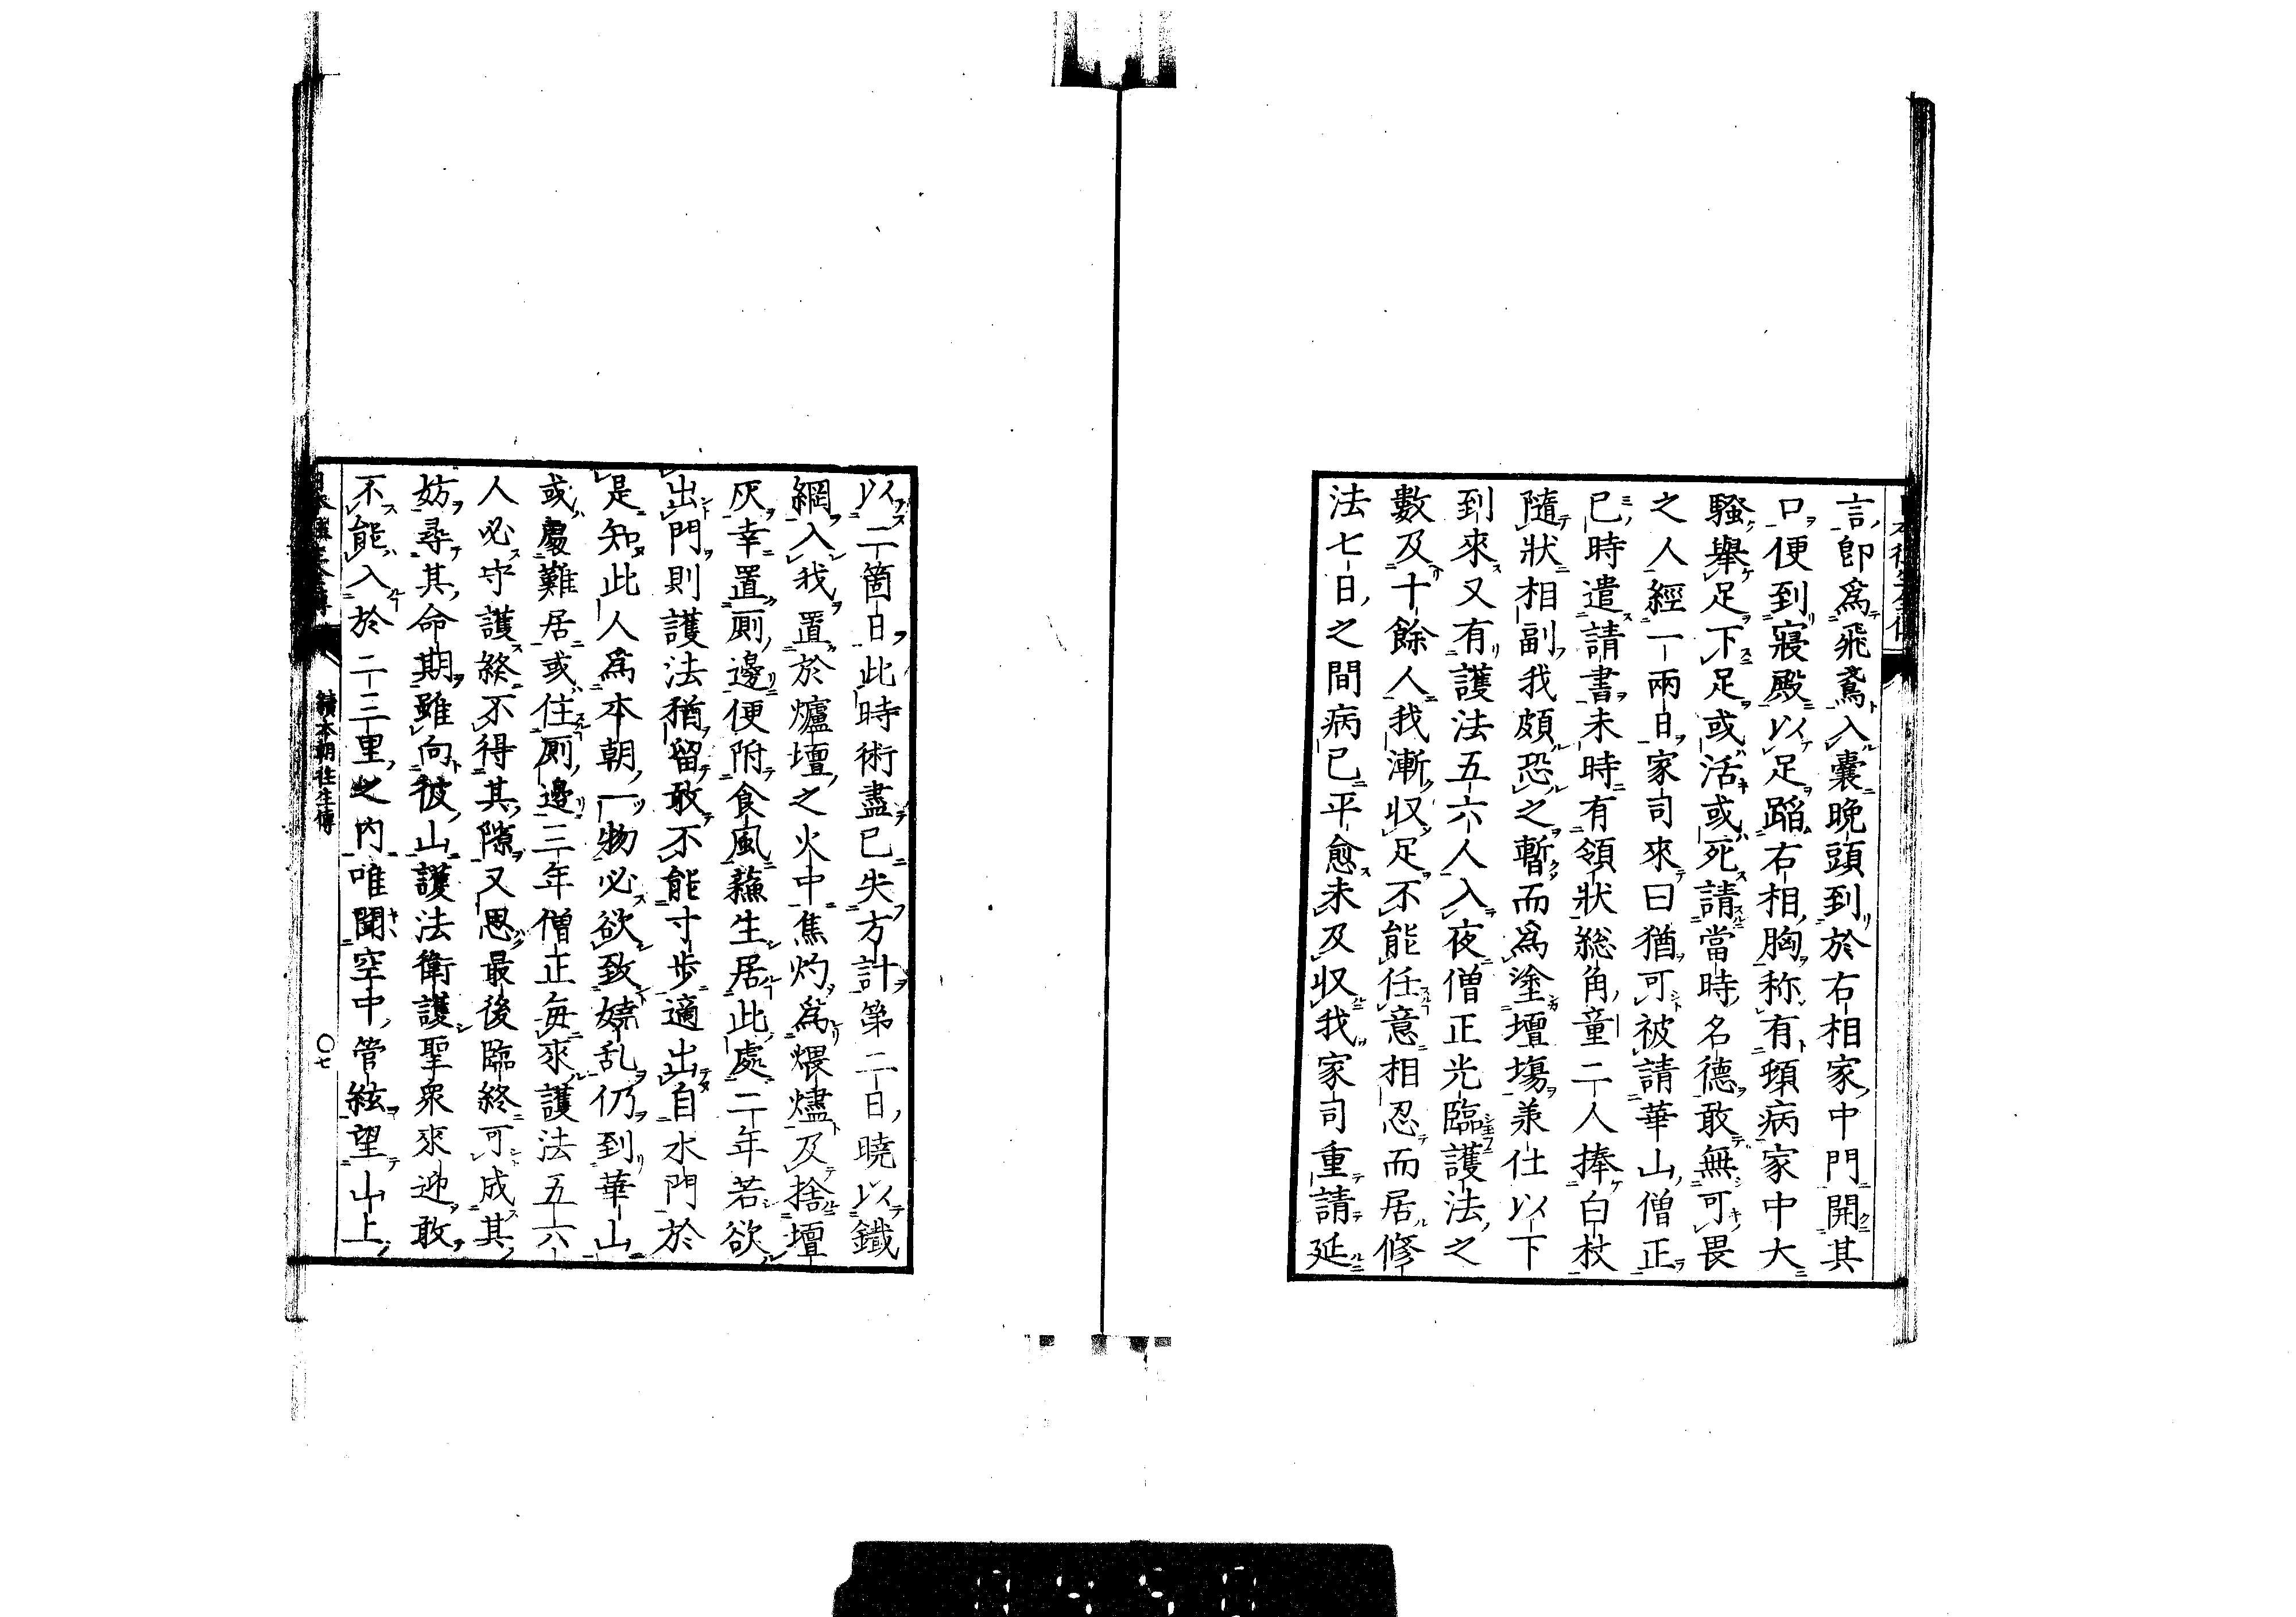 言即為飛鳶入囊晩頭到於右相家中門開其
口便到寢殿以足蹈右相胸称有頓病家中大
騷擧足下足或活或死請當時名德敢無可畏
之人經一兩日家司來曰猶可被請華山僧正
已時遣請書未時有領狀総角童二人捧白杖
隨狀相副我頗恐之暫而為塗壇塲兼仕以下
到來又有護法五六人入夜僧正光臨護法之
數及十餘人我漸収足不能任意相忍而居修
法七日之間病已平愈未及収我家司重請延
以二箇日此時術盡已失方計第二日曉以鐵
網入我置於爐壇之火中焦灼為煨燼及捨壇
灰幸置厠邊便附食風蘓生居此處二年若欲
出門則護法猶留敢不能寸步適出自水門於
是知此人為本朝一物必欲致嬈乱仍到華山
或處難居或住厠邊三年僧正每來護法五六
人必守護終不得其隙又思最後臨終可成其
妨尋其命期雖向彼山護法衛護聖衆來迎敢
不能入於二三里之內唯聞空中管絃望山上
續本朝往生傳
〇七